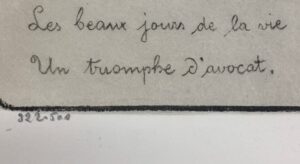 Les beaux jours de la vie
Un triomphe d'avocat.